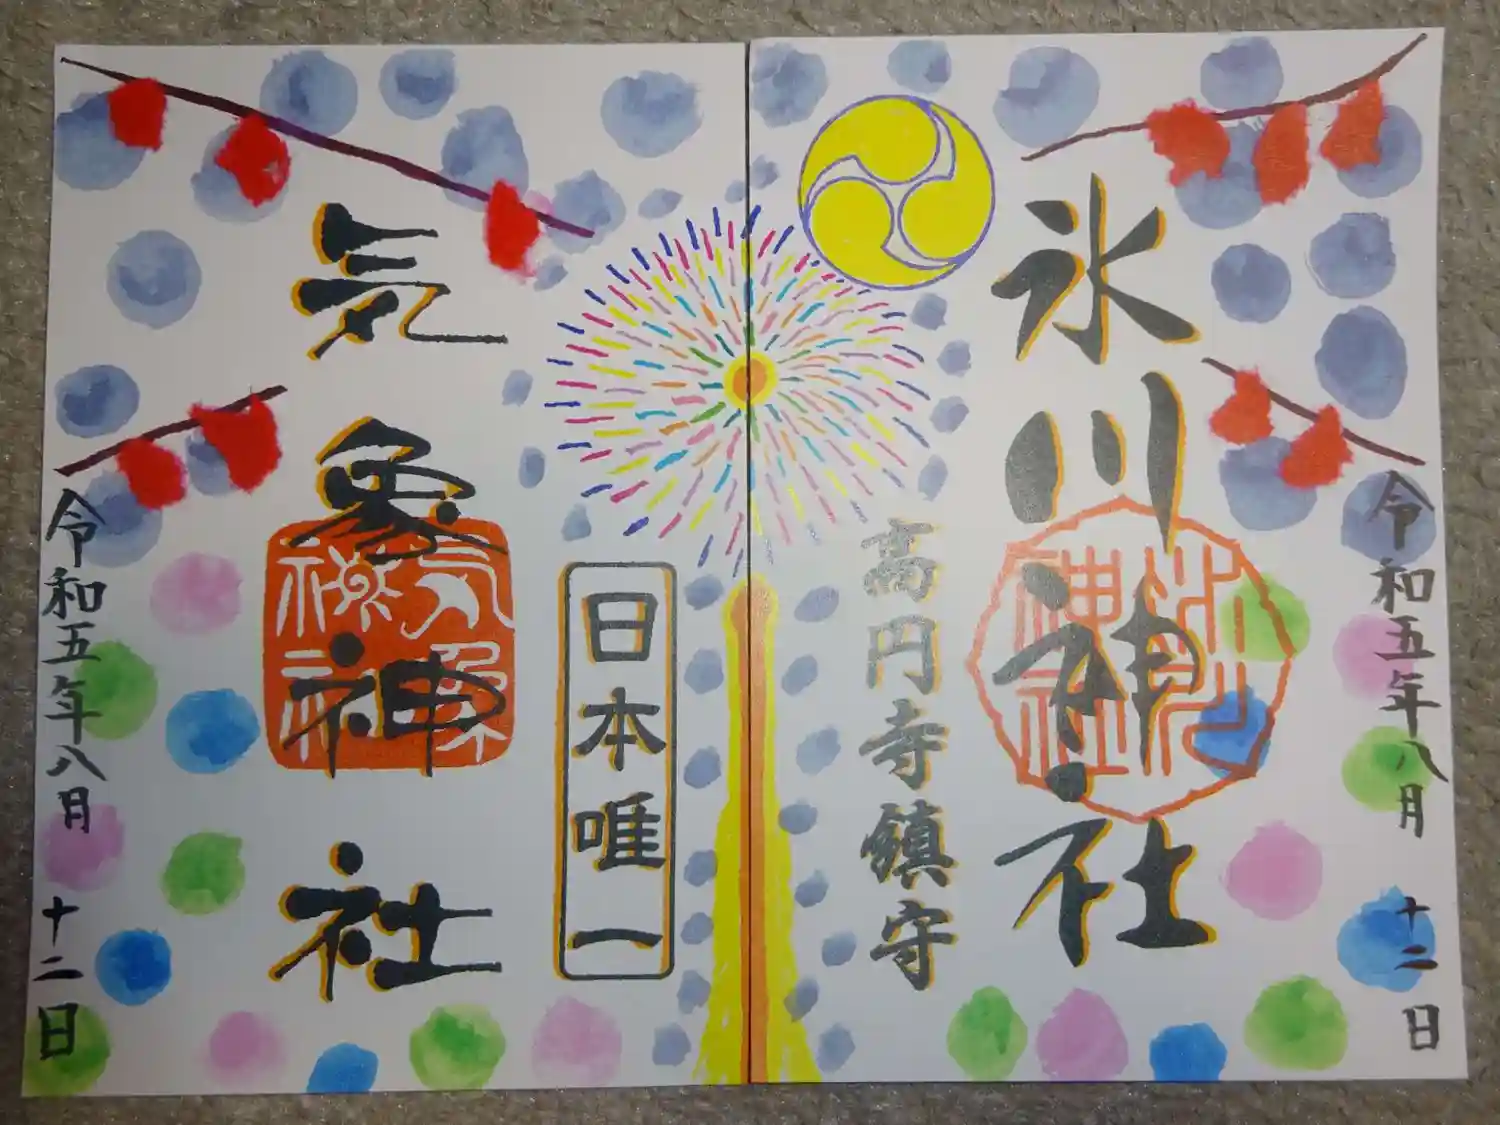 令和五年八月十二日
氷川神社
氷川神社
高円寺鎮守
日本唯一
気象神社
気象神社
令和五年八月十二日